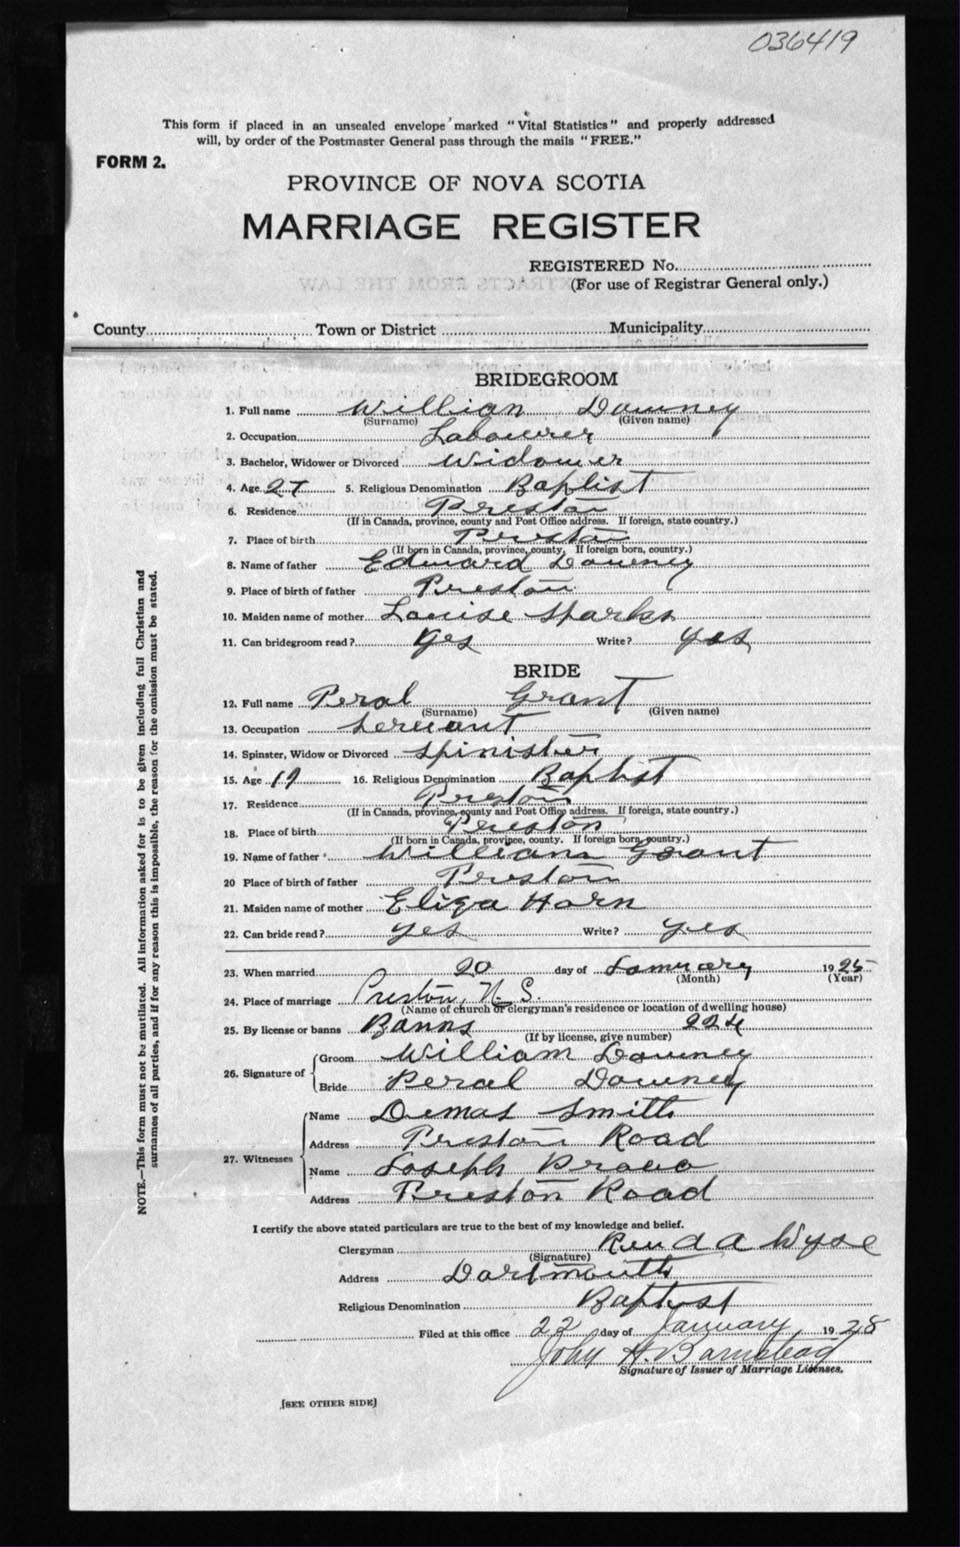 036419
This form if placed in an unsealed envelope marked "Vital Statistics" and properly addressed
will, by order of the Postmaster General pass through the mails "FREE."
FORM 2.
PROVINCE OF NOVA SCOTIA
MARRIAGE REGISTER
REGISTERED No.
(For use of Registrar General only.)
County Town or District Municipality
BRIDEGROOM
1. Full name Willian Downey
(Surname) (Given name)
2. Occupation Labourer
3. Bachelor, Widower or Divorced Widower
4. Age 27 5. Religious Denomination Baptist
6. Residence Preston
(If in Canada, province, county and Post Office address. If foreign, state country.)
7. Place of birth Preston
(If born in Canada, province, county. If foreign born, country.)
8. Name of father Edward Downey
9. Place of birth of father Preston
10. Maiden name of mother Louise Sparks
11. Can bridegroom read? yes Write? yes
BRIDE
12. Full name Peral Grant
(Surname) (Given name)
13. Occupation Servant
14. Spinster, Widow or Divorced Spinister
15. Age 19 16. Religious Denomination Baptist
17. Residence Preston
(If in Canada, province, county and Post Office address. If foreign, state country.)
18. Place of birth Preston
(If born in Canada, province, county. If foreign born, country.)
19. Name of father William Grant
20 Place of birth of father Preston
21. Maiden name of mother Eliza Horn
22. Can bride read? yes Write? yes
23. When married 20 day of January 1925
(Month) (Year)
24. Place of marriage Preston, N S.
(Name of church or clergyman's residence or location of dwelling house)
25. By license or banns Banns 224
(If by license, give number)
26. Signature of
Groom William Downey
Bride Peral Downey
27. Witnesses
Name Demas Smith
Address Preston Road
Name Joseph
Address Preston Road
I certify the above stated particulars are true to the best of my knowledge and belief.
Clergyman A Wyse
(Signature)
Address Dartmouth
Religious Denomination Baptist
Filed at this office 22 day of January 1928
John H. Barnstead
Signature of Issuer of Marriage Licenses.
[SEE OTHER SIDE]
NOTE.—This form must not be mutilated. All information asked for is to be given including full Christian and
surnames of all parties, and if for any reason this is impossible, the reason for the omission must be stated.